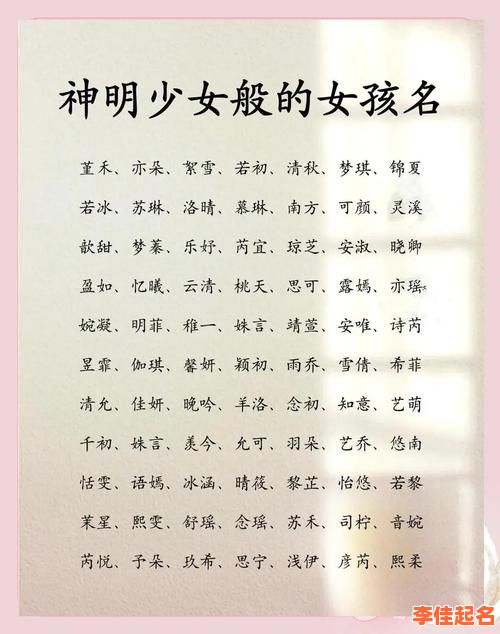 神明少女般的女孩名
堇禾、亦朵、絮雪、若初、清秋、梦琪、锦夏
若冰、苏琳、洛晴、慕琳、南方、可颜、灵溪
歆甜、梦蓁、乐妤、芮宜、琼芝、安淑、晓卿
盈如、忆曦、云清、桃夭、思可、露嫣、亦瑶
婉凝、明菲、稚一、姝言、靖萱、安唯、诗芮
昱霏、伽琪、馨妍、颖初、雨乔、雪倩、希菲
清允、佳妍、晚吟、羊洛、念初、知意、艺萌
千初、姝言、羡今、允可、羽朵、艺乔、悠南
恬雯、语嫣、冰涵、晴筱、黎芷、怡悠、若黎
茉星、熙雯、舒瑶、念瑶、苏禾、司柠、音婉
芮悦、予朵、玖希、思宁、浅伊、彦芮、熙柔
李佳起名